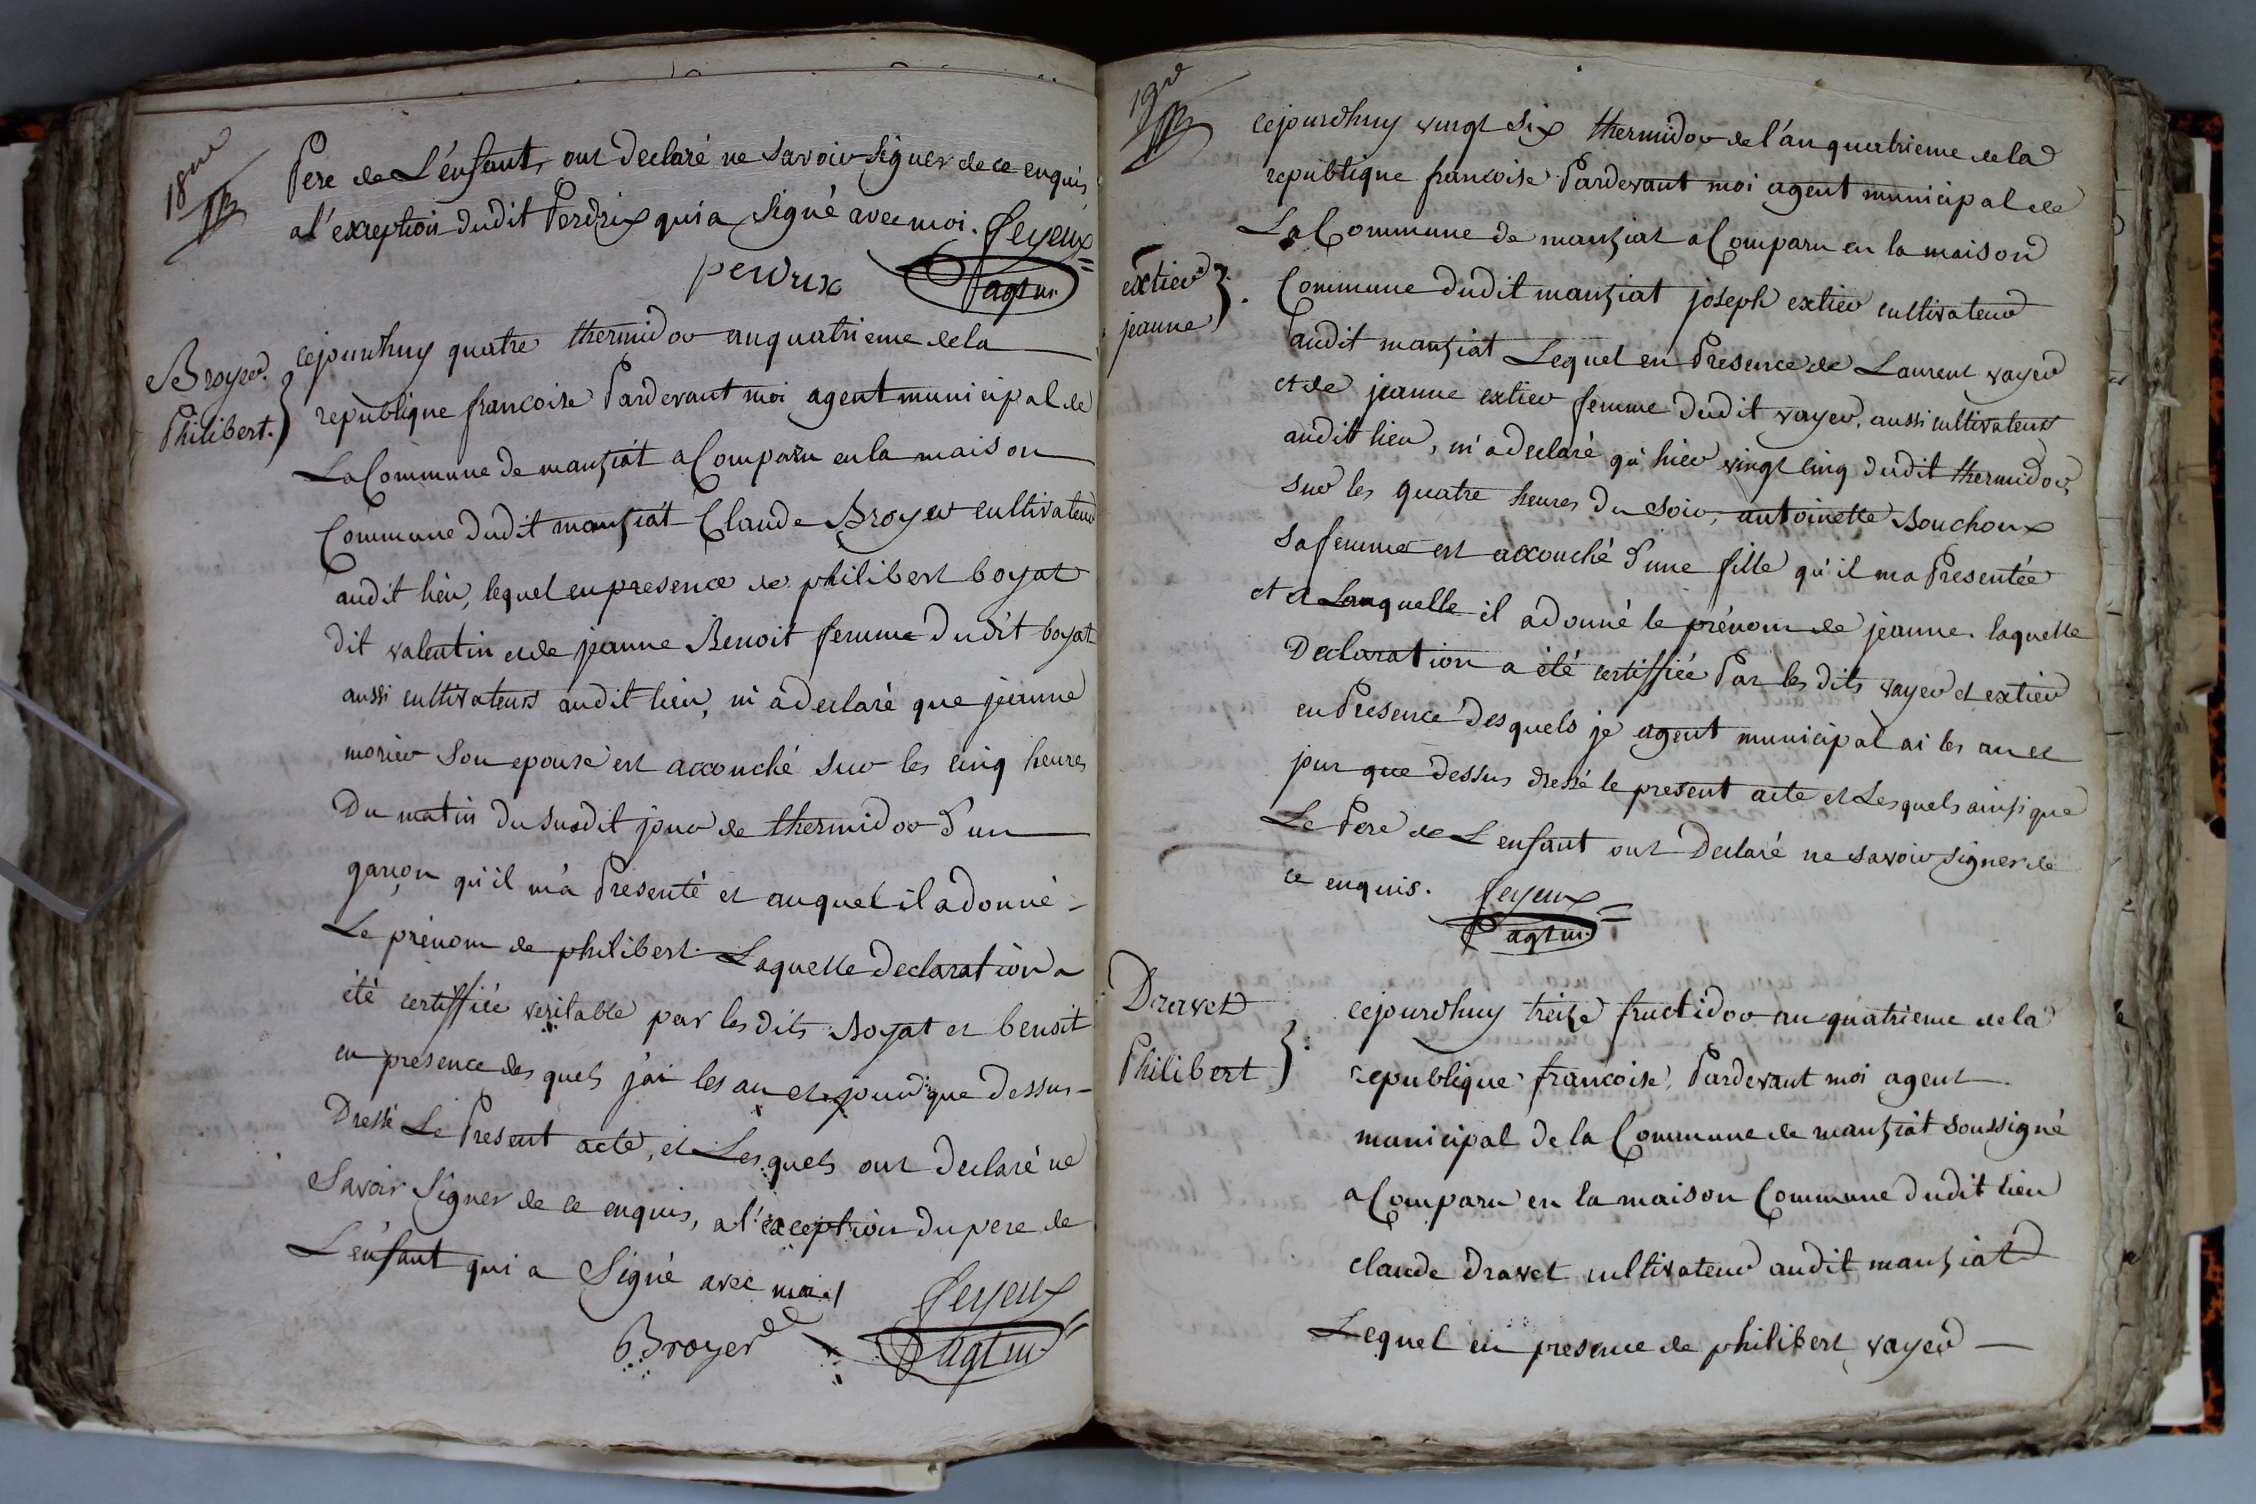 18eme
Pere de L'enfant, ont declaré ne savoir signer de ce enquis,
a l'exception dudit Perdrix qui a signé avec moi. feyeux
perdrix agt m.
Broyer Philibert.
cejourdhuy quatre thermidor an quatrieme de la
republique francoise Pardevant moi agent municipal de
La Commune de manziat a Comparu en la maison
Commune dudit manziat Claude Broyer cultivateur
audit lieu, lequel en presence de philibert boyat
dit valentin et de jeanne Benoit femme dudit boyat
aussi cultivateurs audit lieu, m'a declaré que jeanne
morier son epouse est accouché sur les cinq heures
Du matin du susdit jour de thermidor d'un
garçon qu'il m'a Presenté et auquel il a donné
Le prénom de philibert. Laquelle declaration a
été certiffiée veritable par les dits Boyat et benoit
en presence des quels j'ai les an et jour que dessus
Dressé Le Present acte, et Les quels ont declaré ne
savoir signer de ce enquis, a l'exception du pere de
L'enfant qui a signé avec moi
Broyer feyeux
agt m.
19e
extier jeanne
cejourdhuy vingt six thermidor de l'an quatrieme de la
republique francoise Pardevant moi agent municipal de
La Commune de manziat a Comparu en la maison
Commune dudit manziat joseph extier cultivateur
audit manziat Lequel en Presence de Laurent vayer
et de jeanne extier femme dudit vayer, aussi cultivateurs
audit lieu, m'a declaré qu'hier vingt cinq dudit thermidor,
sur les quatre heures du soir, antoinette Bouchoux
sa femme est accouché d'une fille qu'il m'a Presentée
et a Laquelle il a donné le prénom de jeanne. laquelle
Declaration a été certiffiée Par les dits vayer et extier
en Presence desquels je agent municipal ai les an et
jour que dessus dressé le present acte et Lesquels ainsi que
Le Pere de L'enfant ont declaré ne savoir signer de
ce enquis. feyeux
agt m.
Dravet Philibert
cejourdhuy treize fructidor an quatrieme de la
republique francoise, Pardevant moi agent
municipal de la Commune de manziat soussigné
a Comparu en la maison Commune dudit lieu
claude dravet cultivateur audit manziat
Lequel en presence de philibert vayer